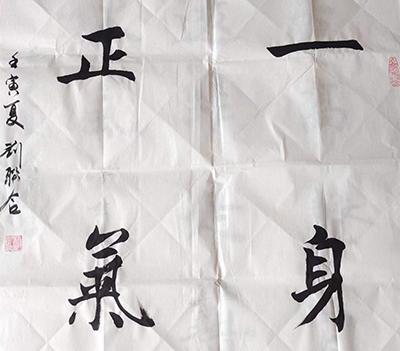 一身
正氣
壬寅夏 刘合